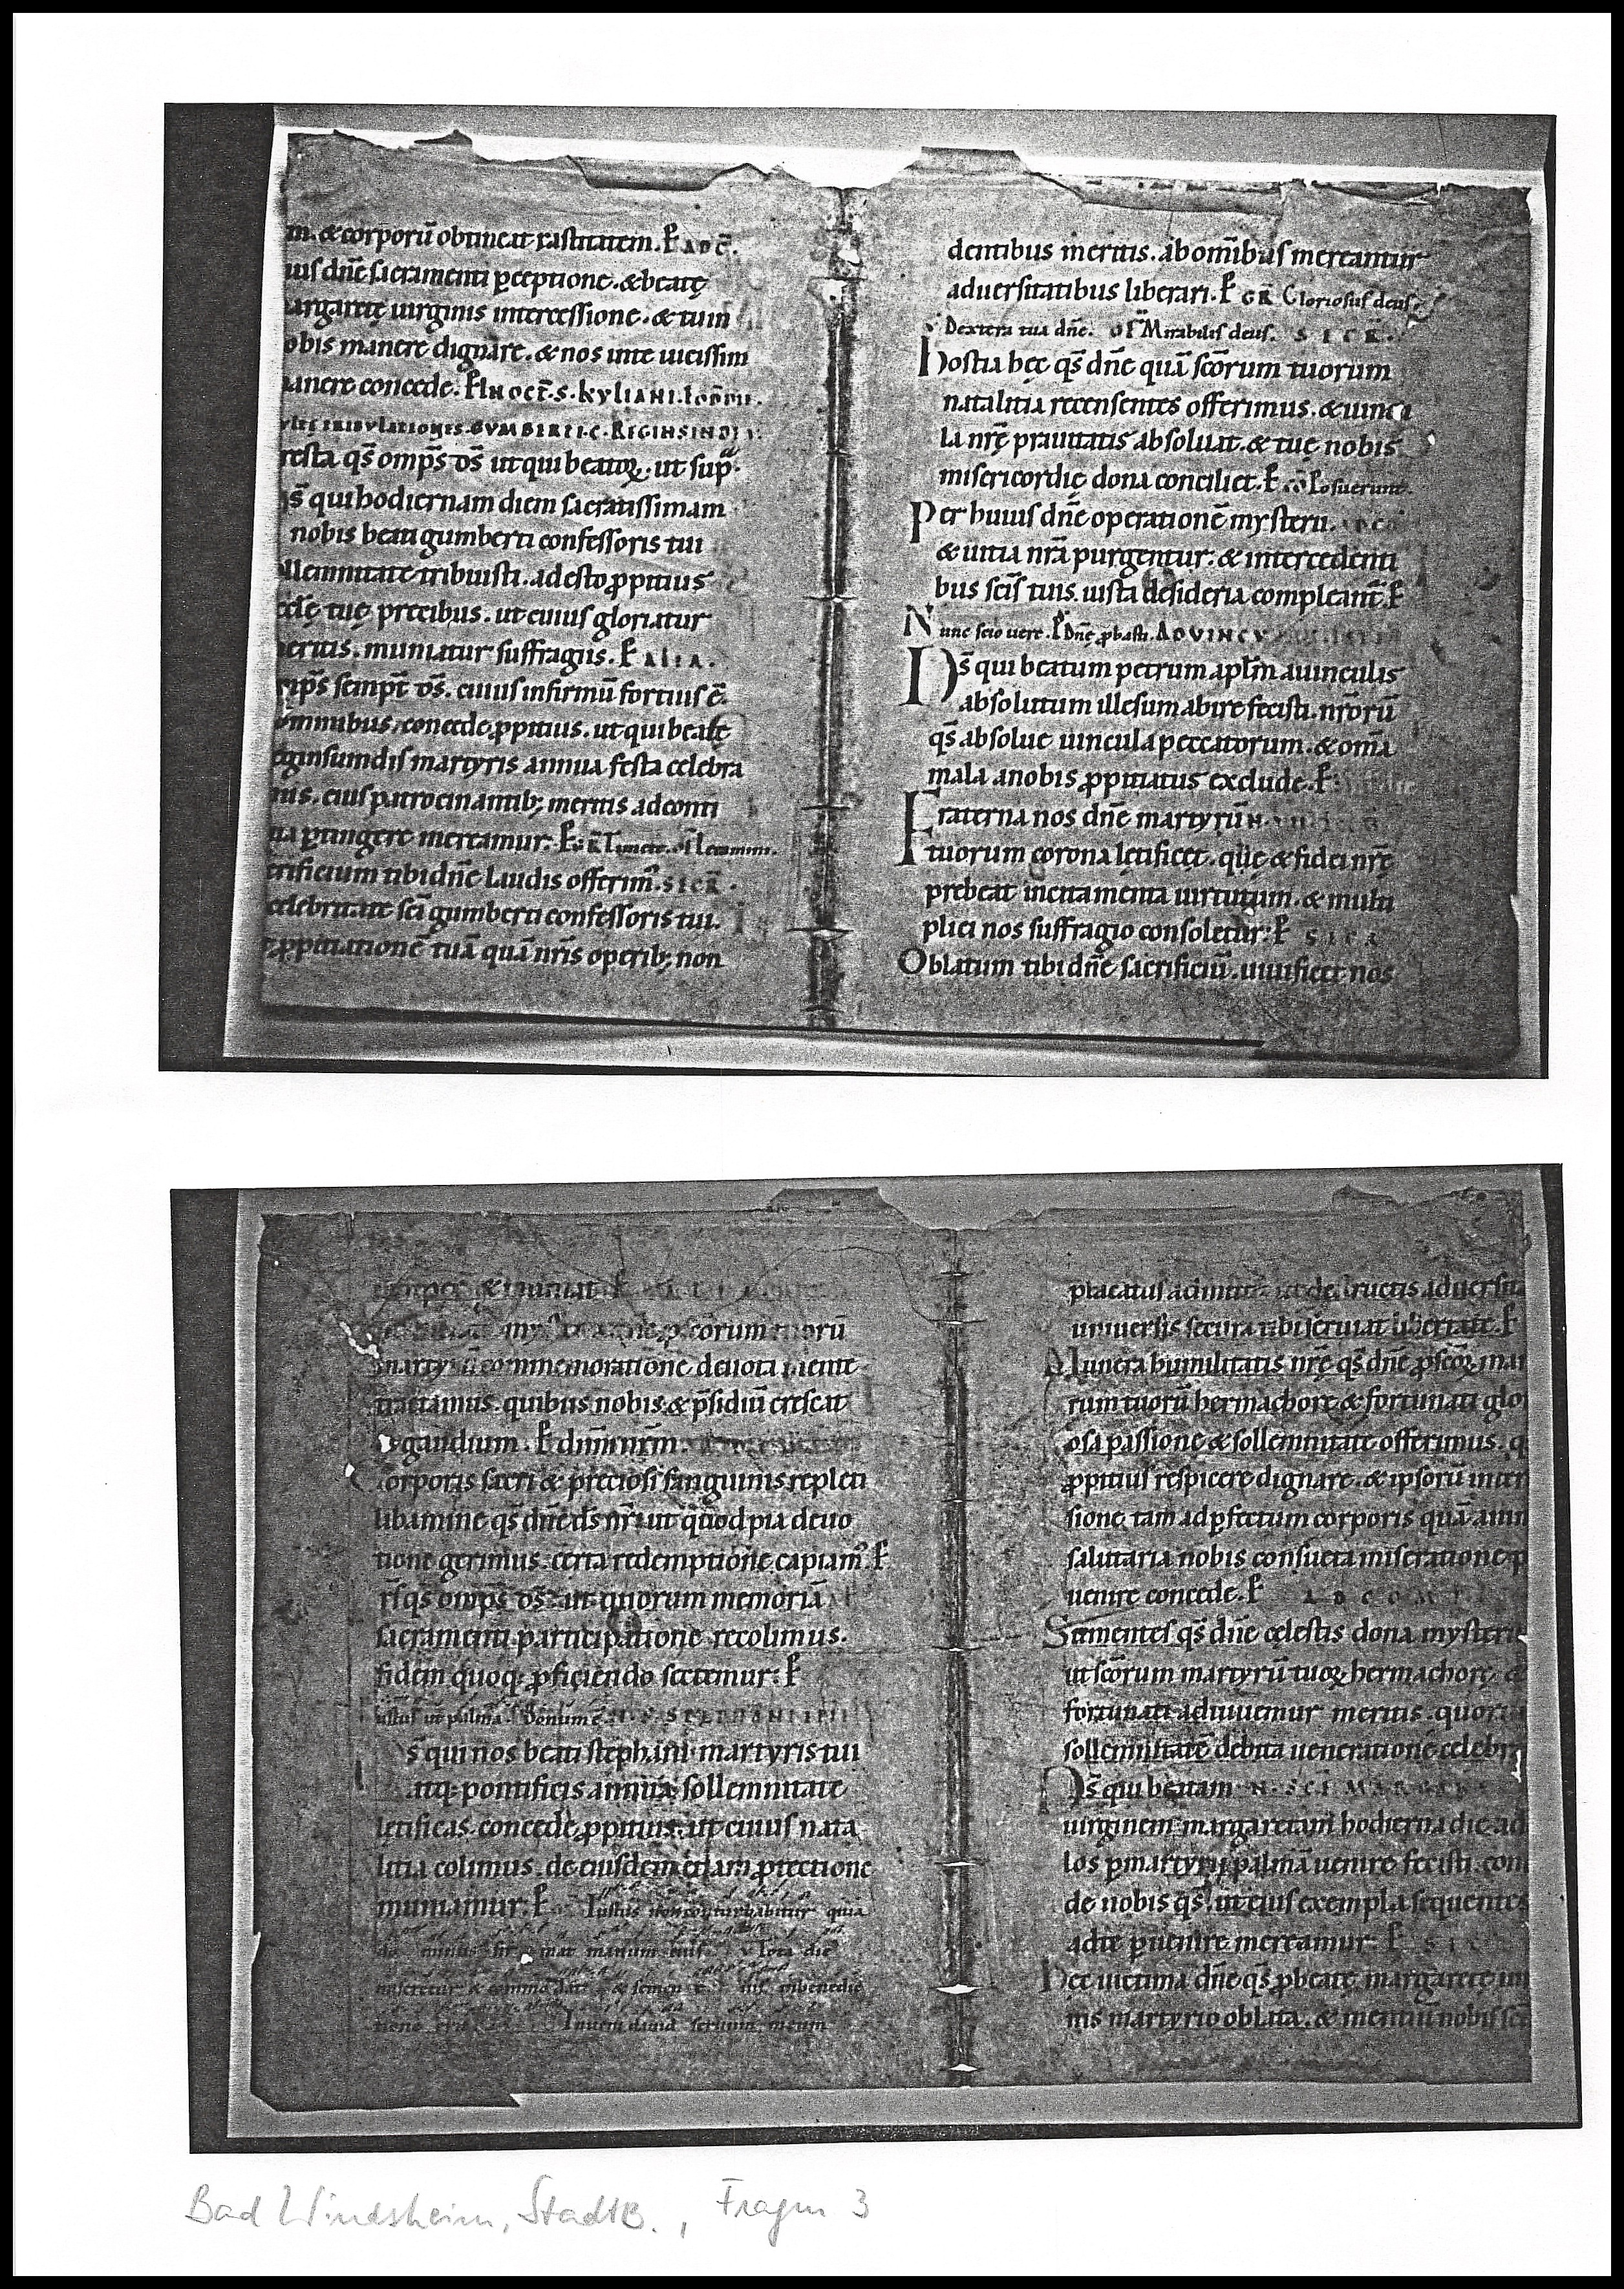 m. & corporū obtineat castitatem. P̄ AD C̄.
uis dn̄e sacramenti ꝑceptione. & beatę
argaretę uirginis intercessione. & tu in
obis manere dignare. & nos in te uicissim
anere concede. P̄ IN OCT̄. S. KYLIANI.
TRIBVLATIONES. GVMBERTI. C. REGINSINDI
resta qs̄ omp̄s ds̄ ut qui beatoꝝ. ut sup̄
s̄ qui hodiernam diem sacratissimam
nobis beati gumberti confessoris tui
ollemnitate tribuisti. adesto ꝓpitius
cclę tuę precibus. ut cuius gloriatur
eritis. muniatur suffragiis. P̄ ALIA.
mp̄s sempt̄ ds̄. cuius infirmū fortius ē
ominibus. concede ꝓpitius. ut qui beatę
eginsundis martyris annua festa celebra
mus. eius patrocinantib; meritis ad conti
ua ꝑtingere mereamur. P̄
crificium tibi dn̄e laudis offerim᷒. SECR̄.
celebritate sc̄i gumberti confessoris tui.
ꝓpitiationē tuā quā nr̄is operib; non
dentibus meritis. ab om̄ibus mereamur
aduersitatibus liberari. P̄ GR̄ Gloriosus deus
V Dextera tua dn̄e. OF̄ Mirabilis deus. SECR̄.
Hostia hęc qs̄ dn̄e quā sc̄orum tuorum
natalitia recensentes offerimus. & uincu
la nrę̄ prauitatis absoluat. & tuę nobis
misericordię dona conciliet. P̄ cō Posuerunt.
Per huius dn̄e operationē mysterii.
& uitia nr̄a purgentur. & intercedenti
bus sc̄is tuis. iusta desideria compleant᷒. P̄
Nunc scio uere. P̄ Dn̄e ꝓbasti. AD VINCV
Ds̄ qui beatum petrum apl̄m a uinculis
absolutum illesum abire fecisti. nr̄orū
qs̄ absolue uincula peccatorum. & om̄a
mala a nobis ꝓpitiatus exclude. P̄
Fraterna nos dn̄e martyrū
tuorum corona lętificet. quę & fidei nrę̄
prebeat incitamenta uirtutum. & multi
plici nos suffragio consoletur. P̄ SECR
Oblatum tibi dn̄e sacrificiū. uiuificet nos
& muniat P̄
dn̄e. sc̄orum tuorū
martyrū commemoratione deuota mente
tractamus. quibus nobis. & p̄sidiū crescat
& gaudium. P̄ dn̄m nr̄m.
Corporis sacri & preciosi sanguinis repleti
libamine qs̄ dn̄e ds̄ nr̄ ut quod pia deuo
tione gerimus. certa redemptione capiam᷒. P̄
qs̄ omp̄s ds̄. ut quorum memoriā
sacramenti participatione recolimus.
fidem quoq; ꝓficiendo sectemur. P̄
iustus ut palma. Bonum ē N. S. STEPHANI
s̄ qui nos beati stephani martyris tui
atq; pontificis annua sollemnitate
letificas. concede ꝓpitius. ut cuius nata
litia colimus. de eiusdem etiam ꝓtectione
muniamur. P̄ Iustus non conturbabitur quia
dominus firmat manum eius. V Tota die
miseretur & commodat & semen in benedic
tione Inueni dauid seruum meum
placatus ut destructis aduersita
uniuersis secura tibi seruiat libertate. P̄
Munera humilitatis nrę̄ qs̄ dn̄e ꝓ sc̄oꝝ mar
rum tuorū hermachorę & fortunati glo
osa passione & sollemnitate offerimus. q
ꝓpitius respicere dignare. & ipsorū inter
sione. tam ad ꝑfectum corporis quā anim
salutaria nobis consueta miseratione p
uenire concede. P̄ AD COM
Sumentes qs̄ dn̄e cęlestis dona mysterii
ut sc̄orum martyrū tuoꝝ hermachorę. &
fortunati adiuuemur meritis. quoru
sollemnitatē debita ueneratione celebra
Ds̄ qui beatam N. SCĒ MARGAR
uirginem margaretam hodierna die ad
los ꝑ martyrii palmā uenire fecisti. con
de nobis qs̄. ut eius exempla sequentes
ad te ꝑuenire mereamur. P̄ SE
Hęc uictima dn̄e qs̄ ꝓ beatę margaretę uir
nis martyrio oblata. & mentiū nobis sc̄i
Bad Windsheim, StadtB., Fragm 3